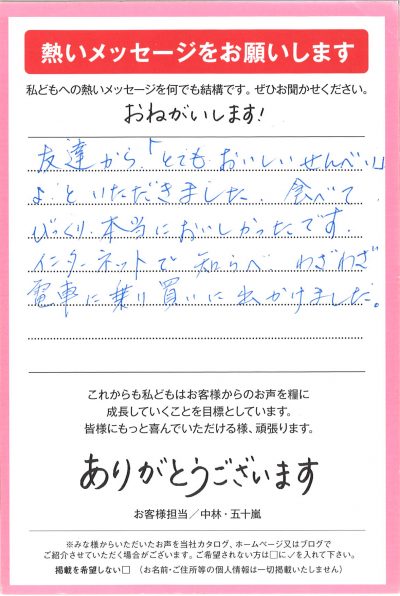 熱いメッセージをお願いします
私どもへの熱いメッセージを何でも結構です。ぜひお聞かせください。
おねがいします!
友達から「とてもおいしいせんべい」
よ!といただきました。食べて
びっくり本当においしかったです。
インターネットで知らべわざわざ
電車に乗り買いに出かけました。
これからも私どもはお客様からのお声を糧に
成長していくことを目標としています。
皆様にもっと喜んでいただける様、頑張ります。
ありがとうございます
お客様担当/中林・五十嵐
※みな様からいただいたお声を当社カタログ、ホームページ又はブログで
ご紹介させていただく場合がございます。ご希望されない方は□に✓を入れて下さい。
掲載を希望しない□ (お名前・ご住所等の個人情報は一切掲載いたしません)